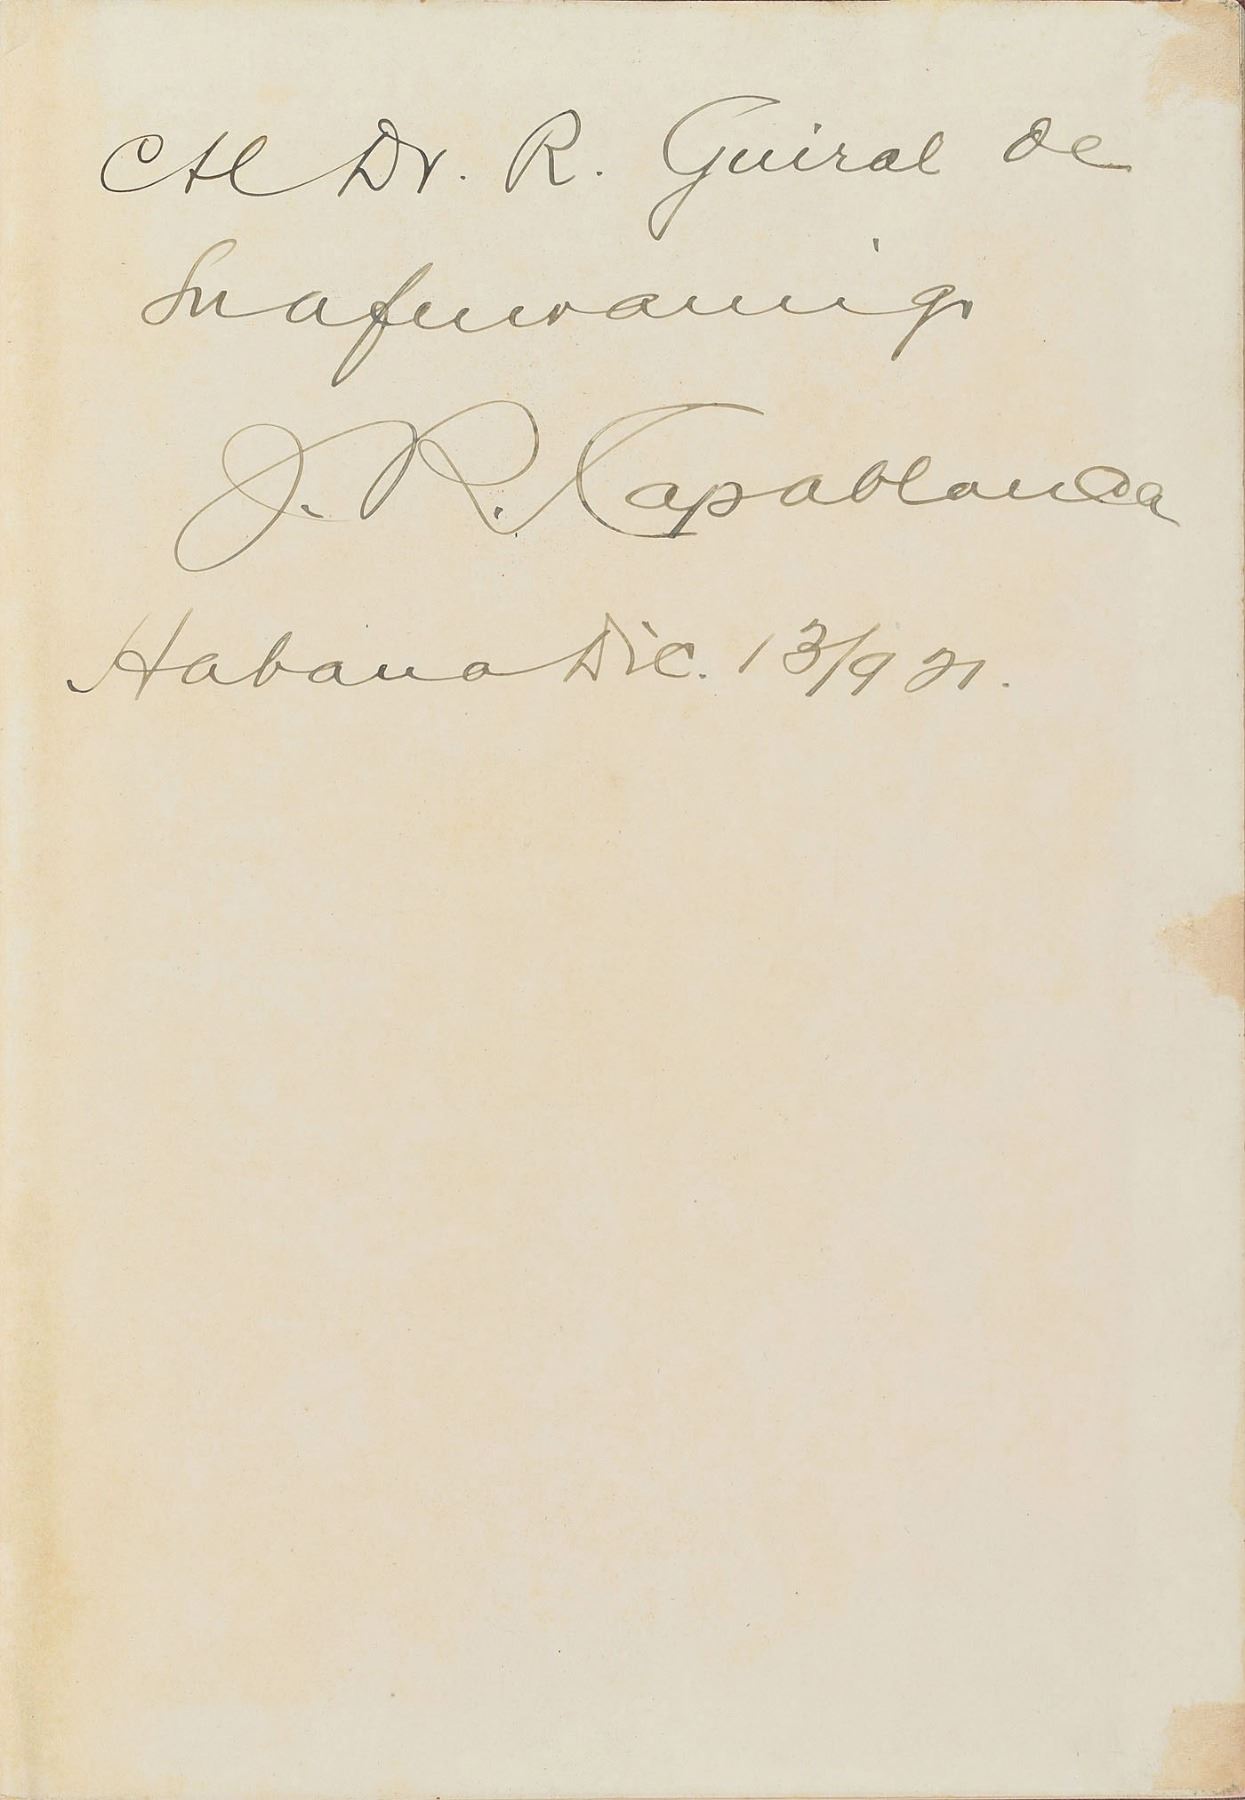 Al Dr. R. Guiral de
Su afmo amigo
J. R. Capablanca
Habana Dic. 13/921.